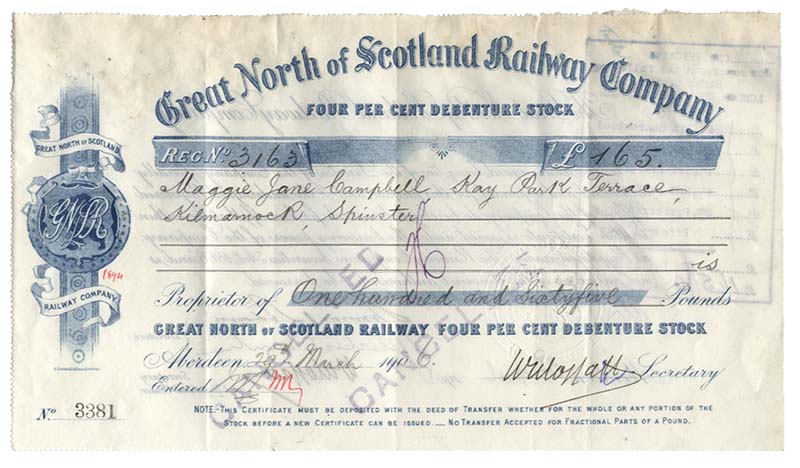 Great North of Scotland Railway Company
FOUR PER CENT DEBENTURE STOCK
GREAT NORTH OF SCOTLAND
REG. No. 3163 £165.
Maggie Jane Campbell Kay Park Terrace,
Kilmarnock, Spinster
GNSR
is
1894
RAILWAY COMPANY
Proprietor of One hundred and Sixtyfive Pounds
GREAT NORTH OF SCOTLAND RAILWAY FOUR PER CENT DEBENTURE STOCK
CANCELLED
CANCELLED
Aberdeen 29th March 1906. Secretary
Entered
No 3381
NOTE.-THIS CERTIFICATE MUST BE DEPOSITED WITH THE DEED OF TRANSFER WHETHER FOR THE WHOLE OR ANY PORTION OF THE
STOCK BEFORE A NEW CERTIFICATE CAN BE ISSUED. __ NO TRANSFER ACCEPTED FOR FRACTIONAL PARTS OF A POUND.